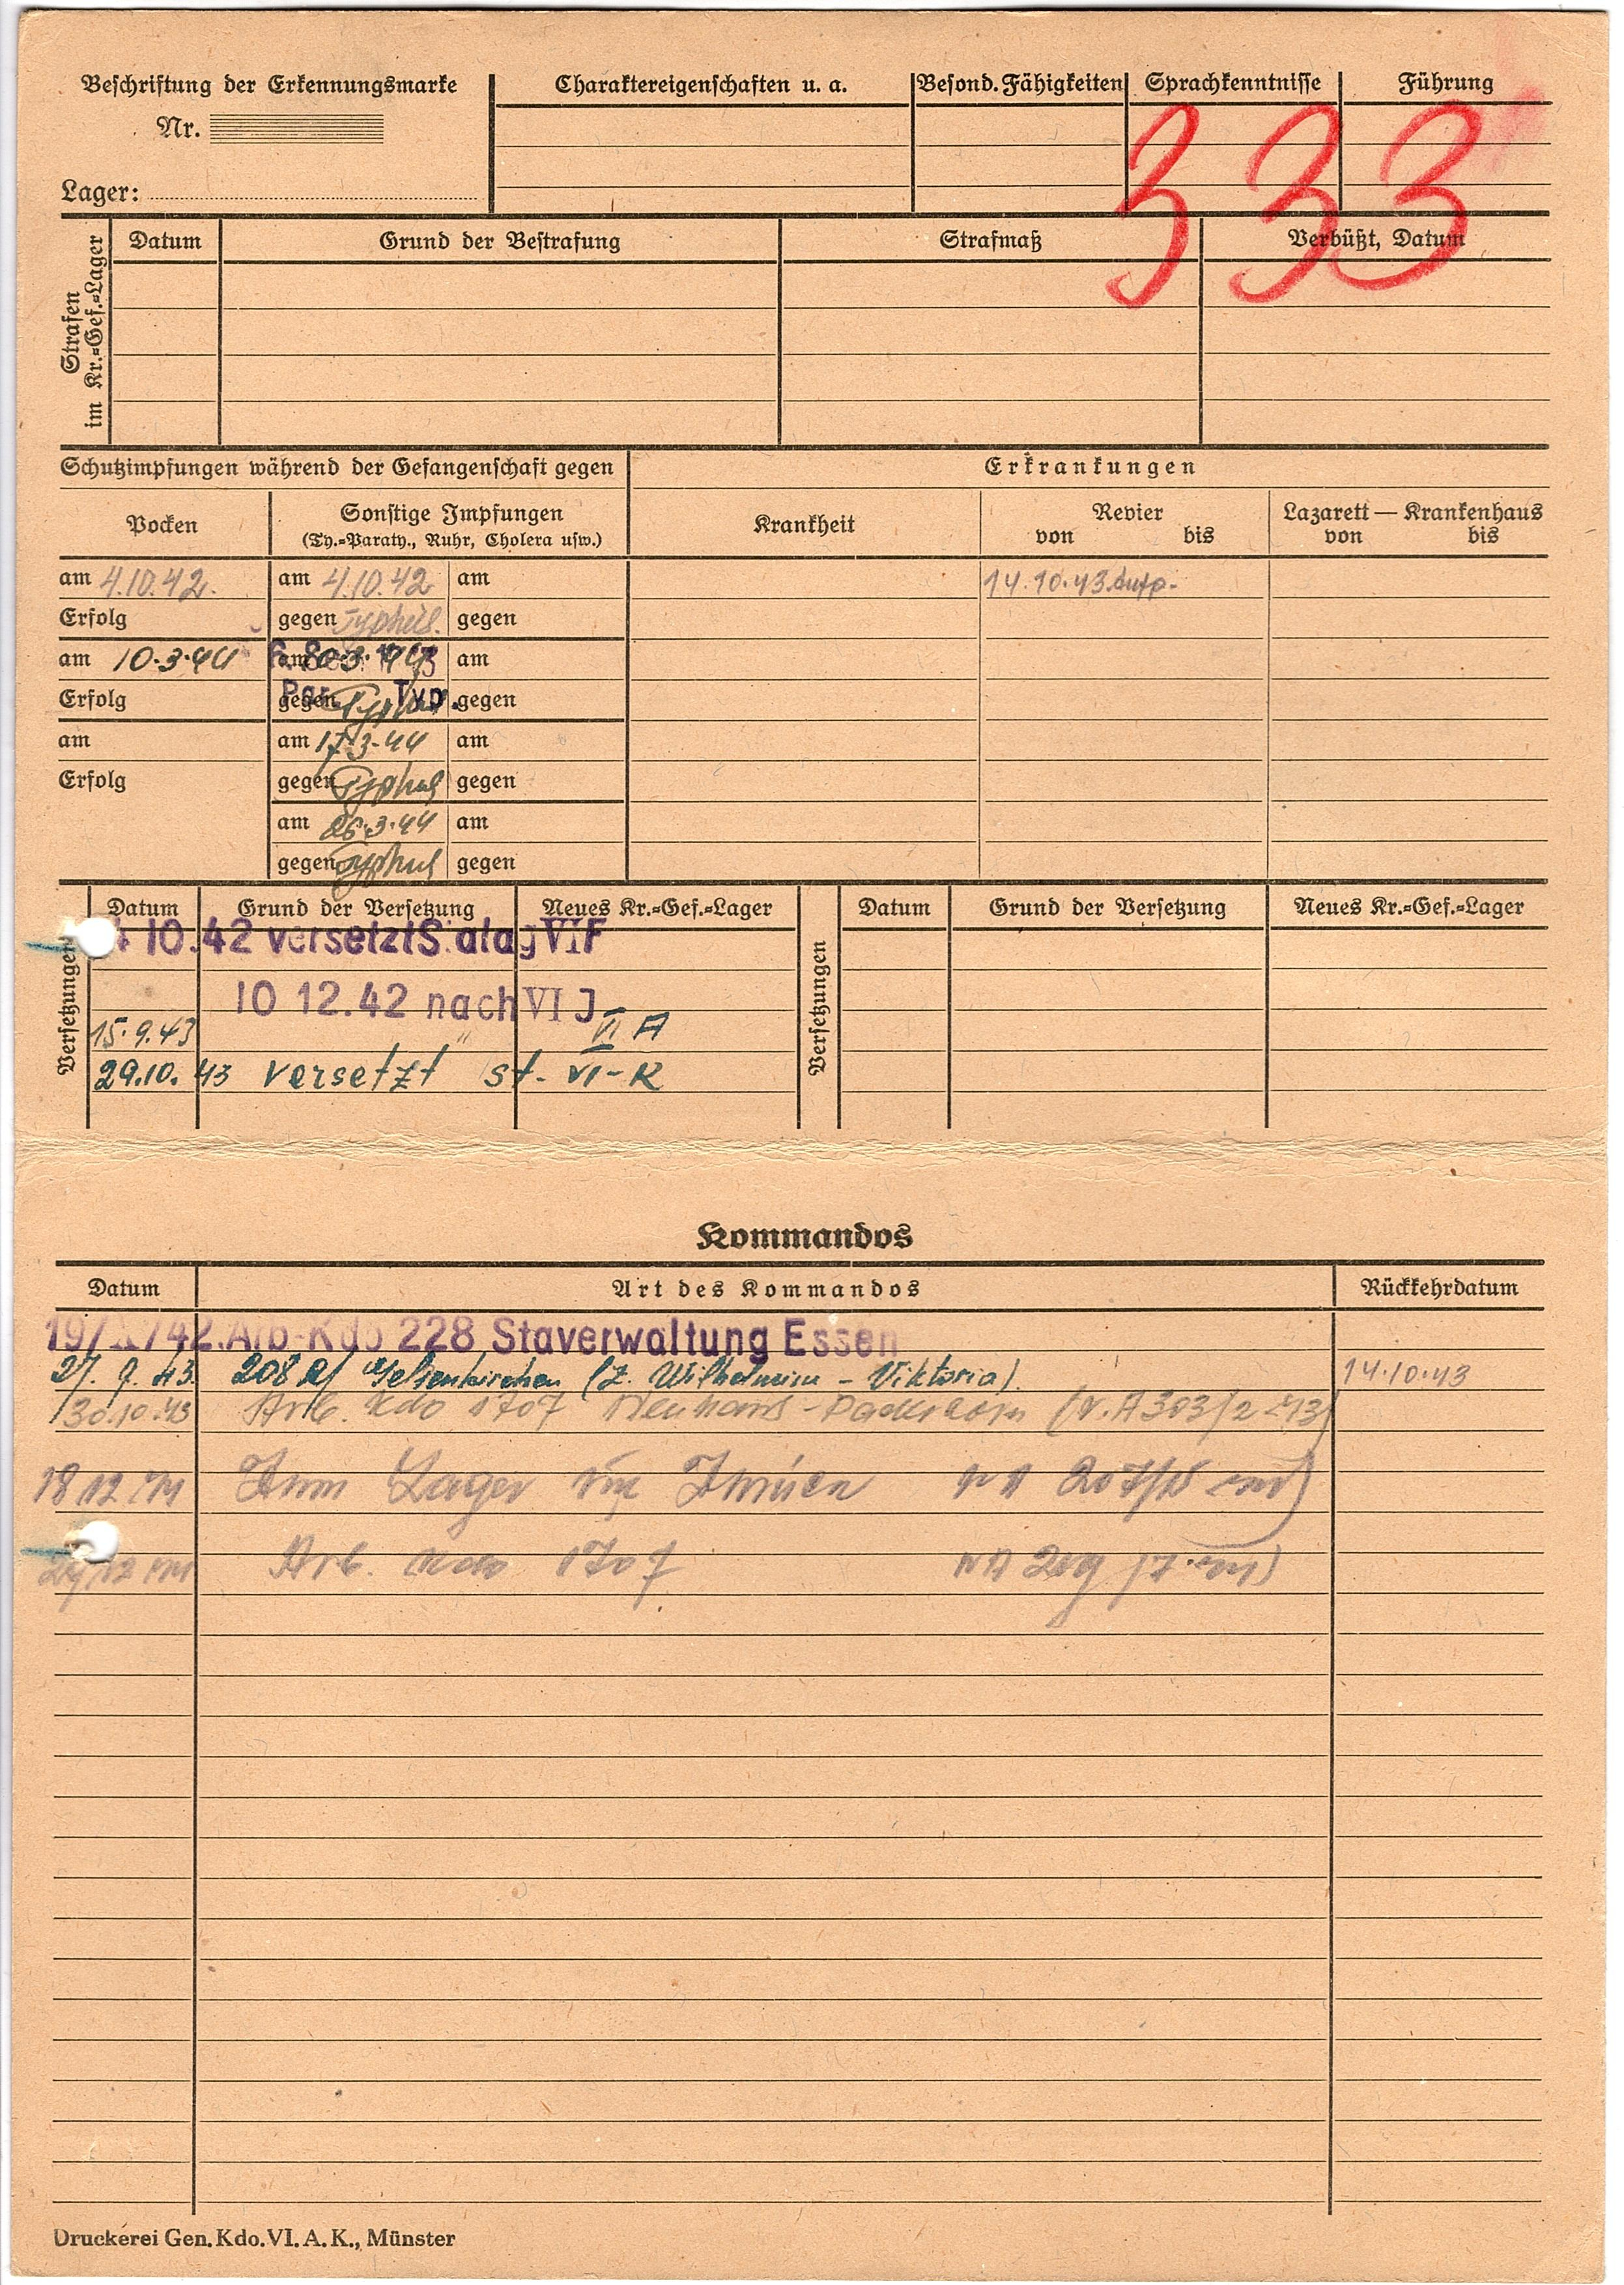 Beschriftung der Erkennungsmarke
Nr.
Lager:
Charaktereigenschaften u. a.
Besond. Fähigkeiten
Sprachkenntnisse
Führung
333
Strafen im Kr.=Gef.=Lager
Datum
Grund der Bestrafung
Strafmaß
Verbüßt, Datum
Schutzimpfungen während der Gefangenschaft gegen
Erkrankungen
Pocken
Sonstige Impfungen
(Ty.=Paraty., Ruhr, Cholera usw.)
Krankheit
Revier
von bis
Lazarett — Krankenhaus
von bis
am 4.10.42. am 4.10.42 am
14.10.43
Erfolg gegen Typhus. gegen
am 10.3.44 am am
Erfolg gegen Typhus gegen
Par. Typ.
am am 17.3.44 am
Erfolg gegen Typhus gegen
am 26.3.44 am
gegen Typhus gegen
Versetzungen
Datum Grund der Versetzung Neues Kr.=Gef.=Lager
10.42 versetzt Stalag VI F
10 12.42 nach VI J
15.9.43 " VI A
29.10.43 versetzt St. VI-K
Versetzungen
Datum Grund der Versetzung Neues Kr.=Gef.=Lager
Kommandos
Datum Art des Kommandos Rückkehrdatum
19/X/42. Arb-Kdo 228 Staverwaltung Essen
27. 9. 43. 208 R/ Gelsenkirchen (Z. Wilhelmine - Viktoria). 14.10.43
30.10.43 Arb. Kdo 1707 Neuhaus-Paderborn (V.A 303/2 43)
18 12 Zum Lager
Arb. Kdo 1707
Druckerei Gen. Kdo. VI. A. K., Münster